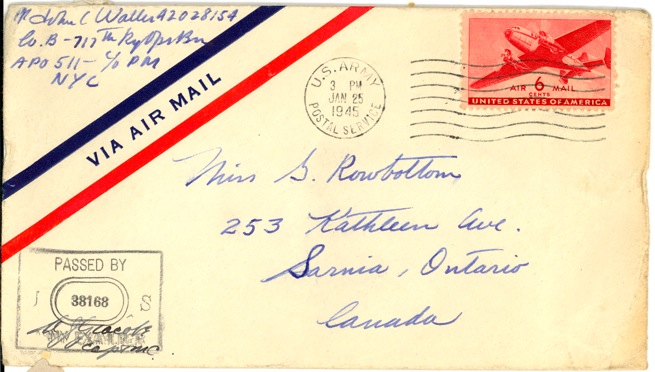 John C Waller A2028154
Co. B - 717th Ry Ops Bn
APO 511 - c/o PM
NYC
VIA AIR MAIL
U.S. ARMY
3 PM
JAN 25
1945
POSTAL SERVICE
AIR 6 MAIL
CENTS
UNITED STATES OF AMERICA
Miss G. Rowbottom
253 Kathleen Ave.
Sarnia, Ontario
Canada
PASSED BY
38168
S